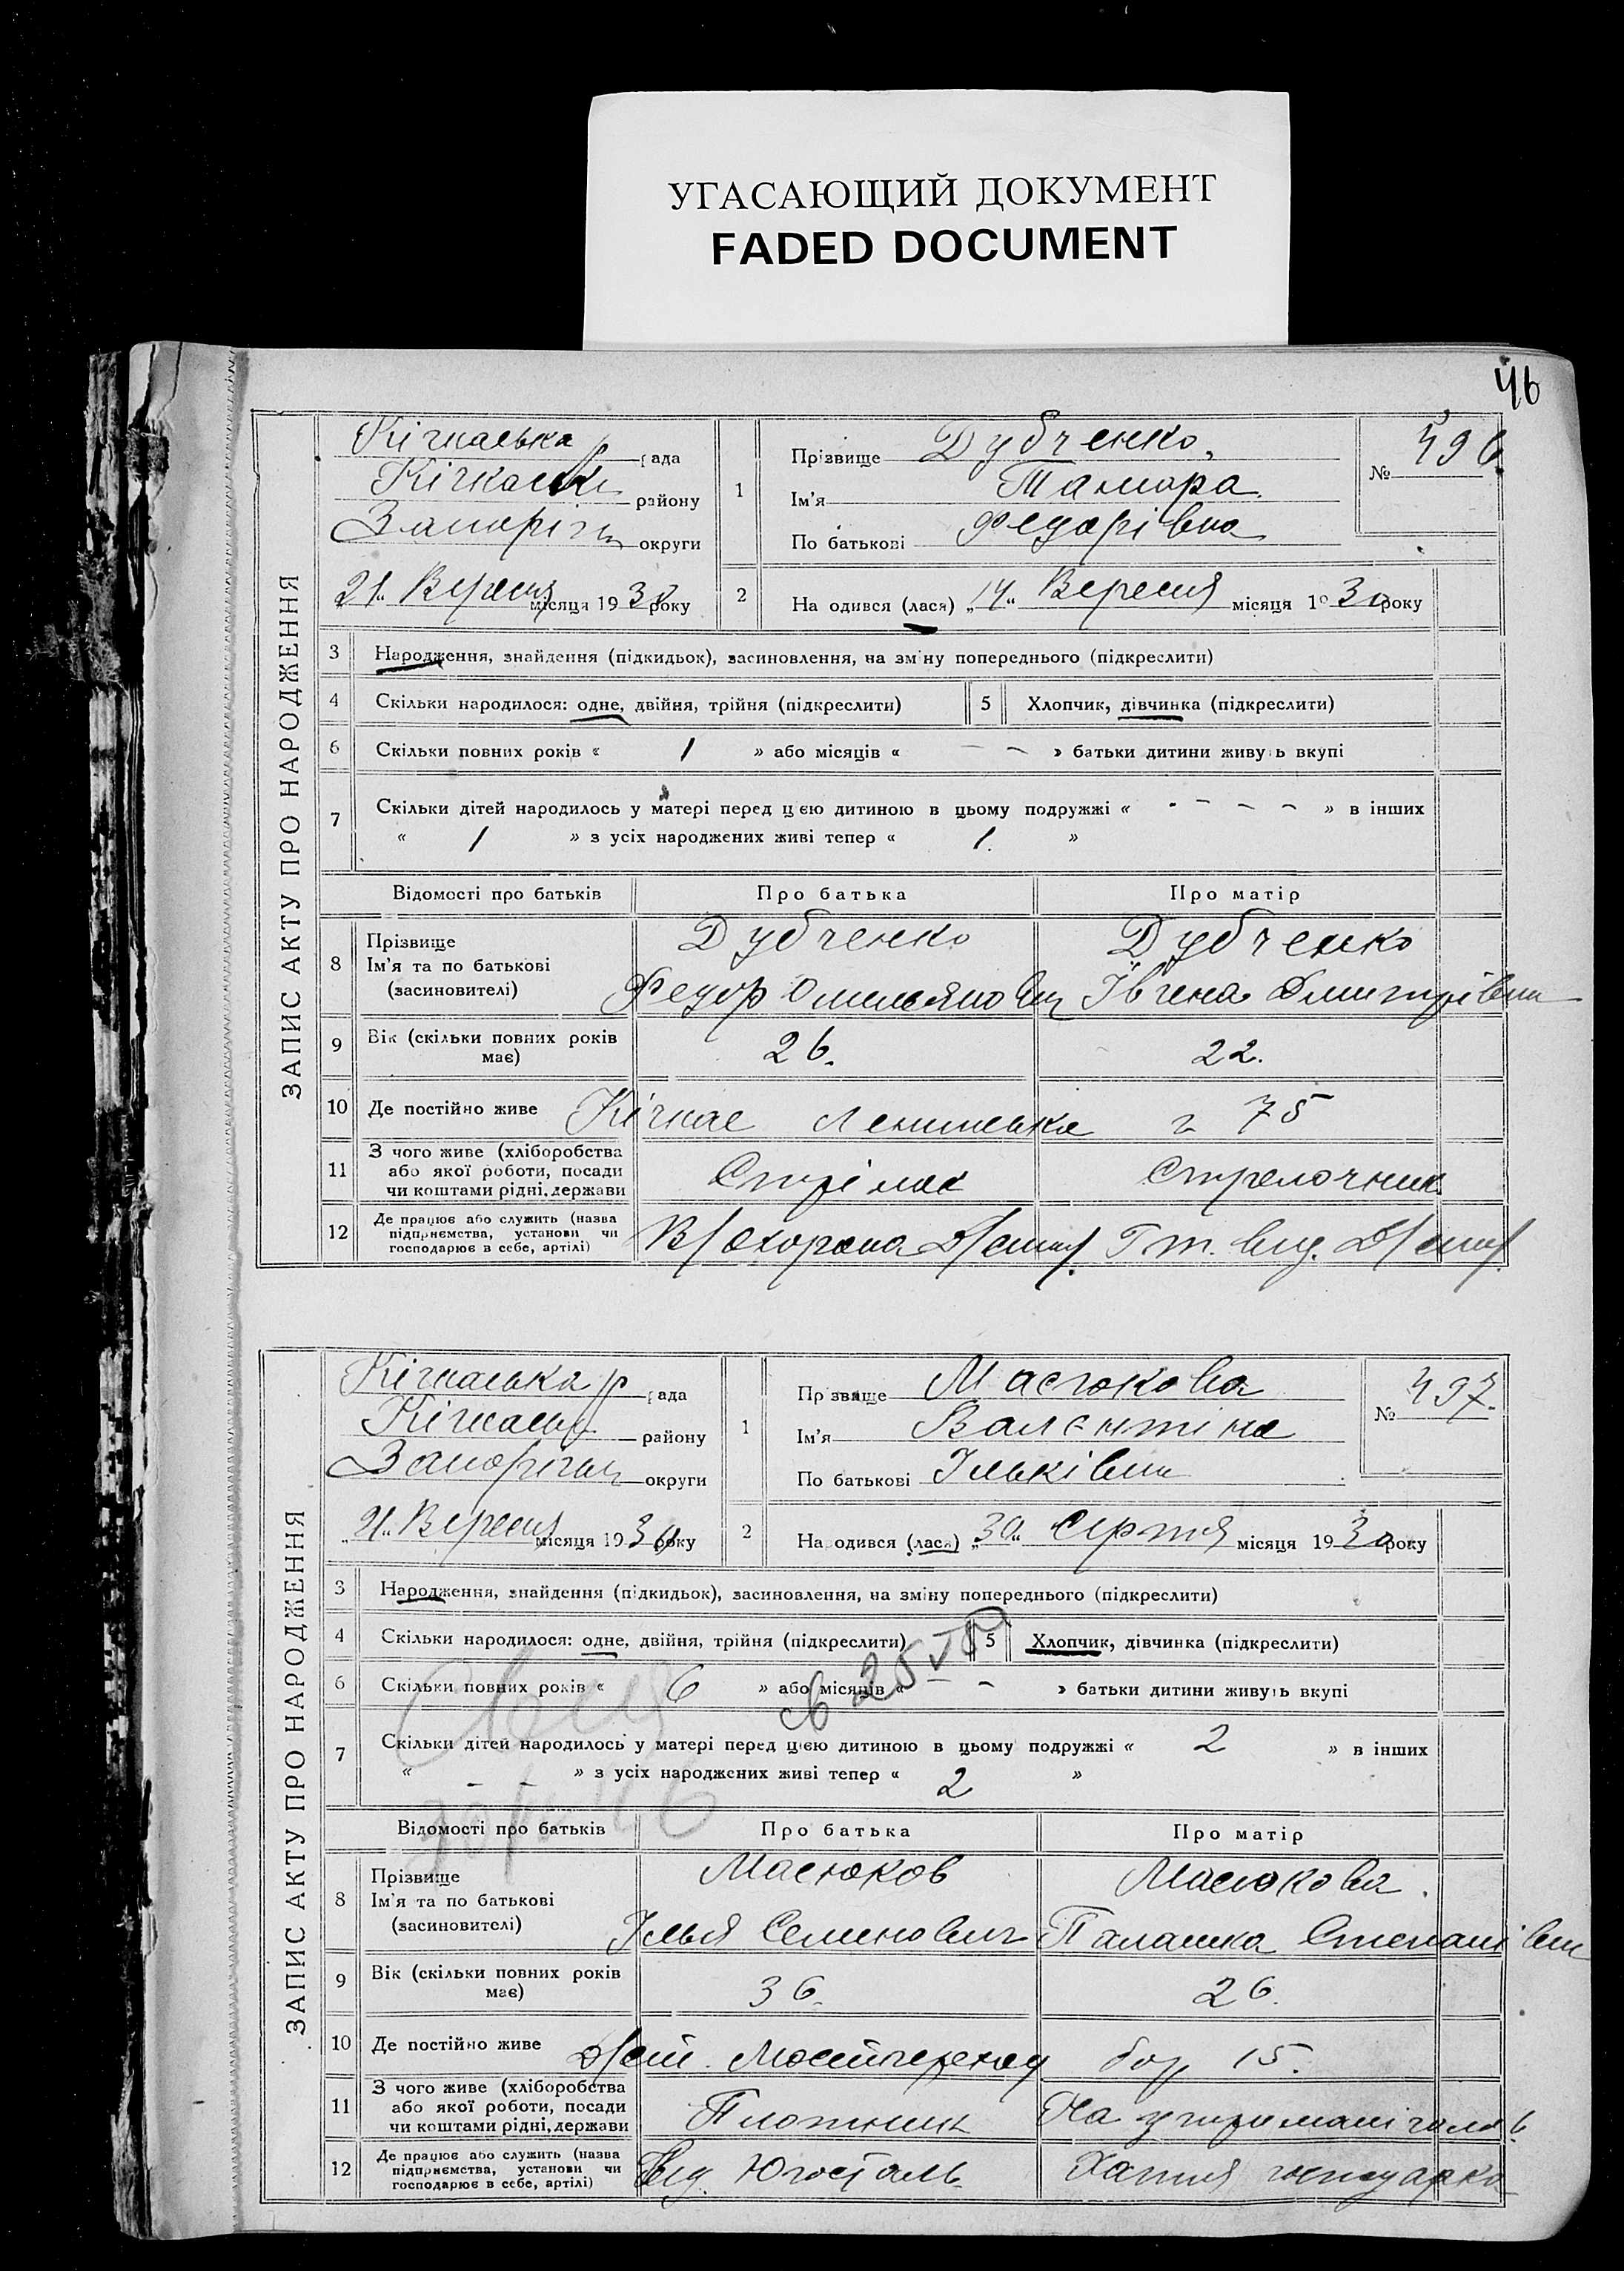 УГАСАЮЩИЙ ДОКУМЕНТ
FADED DOCUMENT
46
ЗАПИС АКТУ ПРО НАРОДЖЕННЯ
Кічкаська рада
Кічкаськ району
Запоріз округи
21 Вересня місяця 1930 року
1
Прізвище Дубченко
Ім'я Тамара
По батькові Федорівна
№ 496.
2
На одився (лася) „14“ Вересня місяця 1930 року
3 Народження, знайдення (підкидьок), засиновлення, на зміну попереднього (підкреслити)
4 Скільки народилося: одне, двійня, трійня (підкреслити) 5 Хлопчик, дівчинка (підкреслити)
6 Скільки повних років « 1 » або місяців « – – » батьки дитини живуть вкупі
7 Скільки дітей народилось у матері перед цією дитиною в цьому подружжі « - – – – » в інших
« 1 » з усіх народжених живі тепер « 1. »
Відомості про батьків Про батька Про матір
8 Прізвище Дубченко Дубченко
Ім'я та по батькові
(засиновителі) Федор Омельянович Івгена Дмитрівна
9 Вік (скільки повних років має) 26. 22.
10 Де постійно живе Кічкас Ленинська 75
11 З чого живе (хліборобства
або якої роботи, посади
чи коштами рідні, держави Стрілок Стрелочник
12 Де працює або служить (назва
підприємства, установи чи
господарює в себе, артілі) В/Охорона Д/стр. від. Д/стр.
ЗАПИС АКТУ ПРО НАРОДЖЕННЯ
Кічкаська рада
Кічкаськ району
Запорізьк округи
„21“ Вересня місяця 1930 року
1
Прізвище Маслокова
Ім'я Валентіна
По батькові Ільківна
№ 497.
2
На родився (лася) „30“ Серпня місяця 1930 року
3 Народження, знайдення (підкидьок), засиновлення, на зміну попереднього (підкреслити)
4 Скільки народилося: одне, двійня, трійня (підкреслити) 5 Хлопчик, дівчинка (підкреслити)
6 Скільки повних років « 6 » або місяців « – – » батьки дитини живуть вкупі
7 Скільки дітей народилось у матері перед цією дитиною в цьому подружжі « 2 » в інших
« – – » з усіх народжених живі тепер « 2 »
Відомості про батьків Про батька Про матір
8 Прізвище Масюков Масюкова
Ім'я та по батькові
(засиновителі) Ілья Семенович Палашка Степанівна
9 Вік (скільки повних років має) 36. 26.
10 Де постійно живе 15.
11 З чого живе (хліборобства
або якої роботи, посади
чи коштами рідні, держави Плотник На утримані чолов.
12 Де працює або служить (назва
підприємства, установи чи
господарює в себе, артілі) Від. Югосталь Хатня господарка